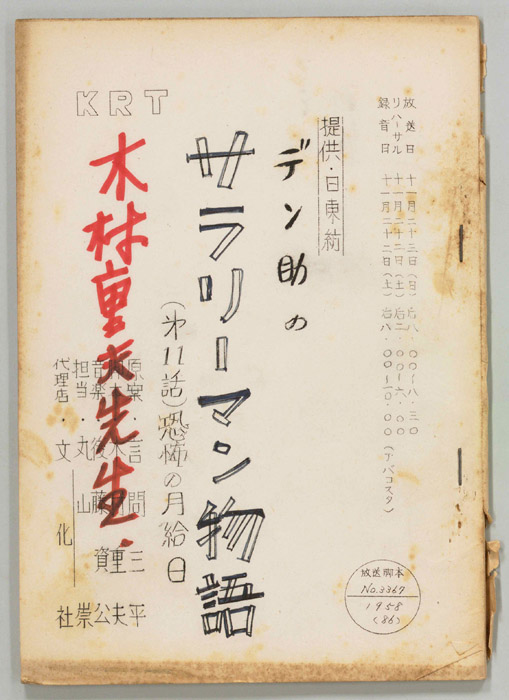 放送日 十一月二十三日(日)后八・〇〇〜八・三〇
リハーサル 十一月二十二日(土)后二・〇〇〜六・〇〇
録音日 十一月二十二日(土)后八・〇〇〜一〇・〇〇(アバコスタ)
提供・日東紡
デン助の
サラリーマン物語
(第11話)恐怖の月給日
KRT
木村重夫先生.
原案・言問三平
木村重夫
音楽・後藤資公
担当・丸山崇
代理店・文化社
放送脚本
No.3367
1958
(86)